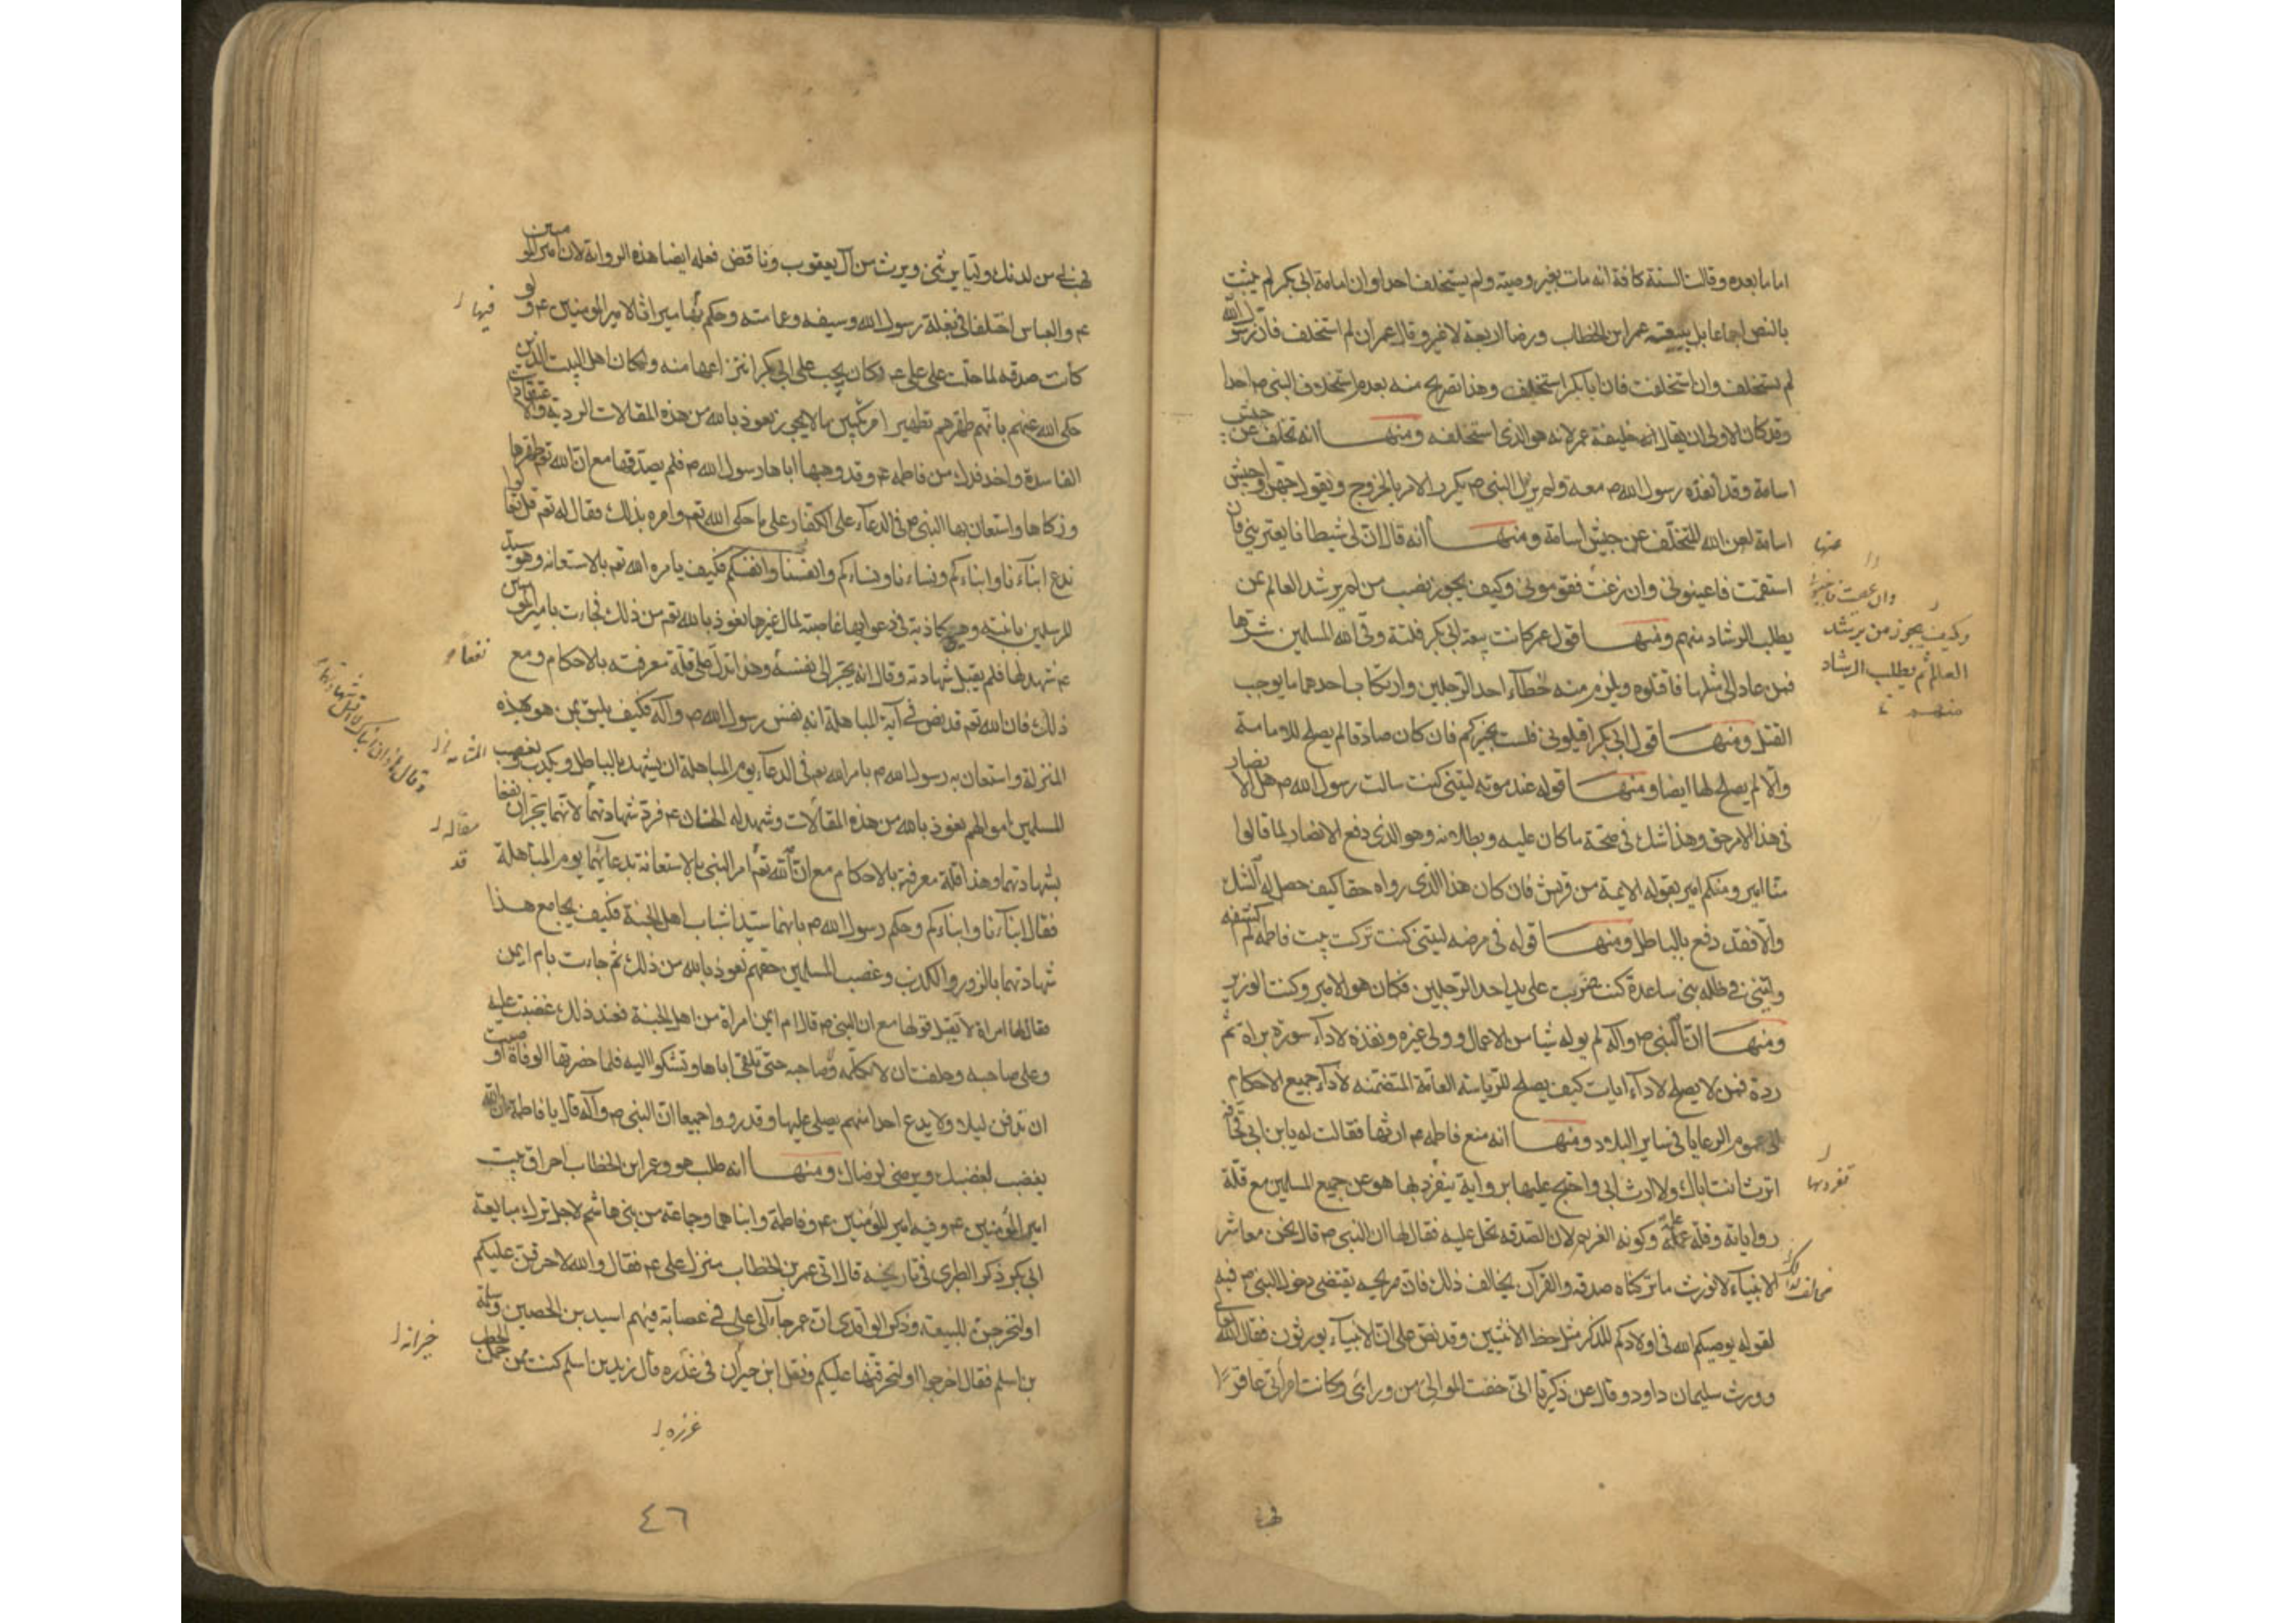 اماما بعده وقالت السنة كافة انه مات بغير وصية ولم يستخلف احدا وان امامة ابي بكر لم يثبت
بالنص اجماعا بل ببيعة عمر ابن الخطاب ورضا اربعة لا غير وقال عمر ان لم استخلف فان رسول الله
لم يستخلف وان استخلفت فان ابا بكر استخلف وهذا تصريح منه بعدم استخلاف النبي ص احدا
وقد كان الاولى ان يقال انه خليفة عمر لانه هو الذي استخلفه ومنها انه تخلف عن جيش
اسامة وقد أنفذه رسول الله ص معه ولم يزل النبي ص يكرر الامر بالخروج ويقول جهزوا جيش
اسامة لعن الله المتخلف عن جيش اسامة ومنها أنه قال ان لي شيطانا يعتريني فان
استقمت فاعينوني وان زغت فقوموني وكيف يجوز نصب من لم يرشد العالم عن
يطلب الرشاد منهم ومنها قول عمر كانت بيعة ابي بكر فلتة وقى الله المسلمين شرها
فمن عاد الى مثلها فاقتلوه ويلزم منه خطأ احد الرجلين وارتكاب احدهما ما يوجب
القتل ومنها قول ابي بكر اقيلوني فلست بخيركم فان كان صادقا لم يصلح للامامة
والا لم يصلح لها ايضا ومنها قوله عند موته ليتني كنت سالت رسول الله ص هل للانصار
في هذا الامر حق وهذا شك في صحة ما كان عليه وبطلانه وهو الذي دفع الانصار لما قالوا
منا امير ومنكم امير بقوله الايمة من قريش فان كان هذا الذي رواه حقا كيف حصل له الشك
والا فقد دفع بالباطل ومنها قوله في مرضه ليتني كنت تركت بيت فاطمه لم اكشفه
وليتني في ظلة بني ساعدة كنت ضربت على يد احد الرجلين فكان هو الامير وكنت الوزير
ومنها ان النبي ص وآله لم يوله شيا من الاعمال وولى غيره ونفذه لاداء سورة براة ثم
رده فمن لا يصلح لاداء ايات كيف يصلح للرياسة العامة المتضمنة لاداء جميع الاحكام
الى عموم الرعايا في ساير البلاد ومنها انه منع فاطمه ع ارثها فقالت له يا ابن ابي قحافة
اترث انت اباك ولا ارث ابي واحتج عليها برواية ينفرد بها هو عن جميع المسلمين مع قلة
رواياته وقلة علمه وكونه الغريم لان الصدقه تحل عليه فقال لها ان النبي ص قال نحن معاشر
الانبياء لا نورث ما تركناه صدقه والقرآن يخالف ذلك فان صريحه يقتضي دخول النبي ص فيه
لقوله يوصيكم الله في اولادكم للذكر مثل حظ الانثيين وقد نص على ان الانبياء يورثون فقال الله تعالى
وورث سليمان داود وقال عن ذكريا اني خفت الموالي من ورائي وكانت امرأتي عاقرا
فهب
عنها
وان عصيت
وكيف يجوز من يرشد
العالم ثم يطلب الرشاد
منهم
تفرد بها
مخالف لذلك
فهب لي من لدنك وليا يرثني ويرث من آل يعقوب وناقض فعله ايضا هذه الرواية لان امير المومنين
ع والعباس اختلفا في بغلة رسول الله وسيفه وعمامته وحكم بها ميراثا لامير المومنين ع ولو
كانت صدقه لما حلت على علي ع وكان يجب على ابي بكر انتزاعها منه ولكان اهل البيت الذين
حكى الله عنهم بانهم طهرهم تطهيرا مرتكبين ما لا يجوز نعوذ بالله من هذه المقالات الردية والاعتقادات
الفاسدة واخذ فدك من فاطمه ع وقد وهبها اباها رسول الله ص فلم يصدقها مع ان الله تع طهرها
وزكاها واستعان بها النبي ص في الدعاء على الكفار على ما حكى الله تع وامره بذلك فقال له تع قل تعالوا
ندع ابناءنا وابناءكم ونساءنا ونساءكم وانفسنا وانفسكم فكيف يامره الله تع بالاستعانة وهو سيد
المرسلين بابنته وهي كاذبة في دعواها غاصبة لمال غيرها نعوذ بالله تع من ذلك فجاءت بامير المومنين
ع شهد لها فلم يقبل شهادته وقال انه يجر الى نفسه وهذا تدل على قلة معرفته بالاحكام ومع
ذلك فان الله تع قد نص في آية المباهلة انه نفس رسول الله ص وآله فكيف يليق بمن هو بهذه
المنزلة واستعان به رسول الله ص بامر الله تع في الدعاء يوم المباهلة ان يشهد بالباطل ويكذب ويغصب
المسلمين اموالهم نعوذ بالله من هذه المقالات وشهد له الحسنان ع فرد شهادتهما لانهما يجران نفعا
بشهادتهما وهذا قلة معرفة بالاحكام مع ان الله تع امر النبي بالاستعانة بدعائهما يوم المباهلة
فقال ابناءنا وابناءكم وحكم رسول الله ص بانهما سيدا شباب اهل الجنة فكيف يجامع هذا
شهادتهما بالزور والكذب وغصب المسلمين حقهم نعوذ بالله من ذلك ثم جاءت بام ايمن
فقال لها امراة لا يقبل قولها مع ان النبي ص قال ام ايمن امراة من اهل الجنة فعند ذلك غضبت عليه
وعلى صاحبه وحلفت ان لا تكلمه وصاحبه حتى تلقى اباها وتشكوا اليه فلما حضرتها الوفاة اوصت
ان تدفن ليلا ولا يدع احدا منهم يصلي عليها وقد رووا جميعا ان النبي ص وآله قال يا فاطمة ان الله
يغضب لغضبك ويرضى لرضاك ومنها انه طلب هو وعمر ابن الخطاب احراق بيت
امير المومنين ع وفيه امير المومنين ع وفاطمة وابناهما وجماعة من بني هاشم لاجل ترك مبايعة
ابي بكر ذكر الطبري في تاريخه قال اتى عمر بن الخطاب منزل علي ع فقال والله لاحرقن عليكم
او لتخرجن للبيعة وذكر الواقدي ان عمر جاء الى علي في عصابة فيهم اسيد بن الحصين وسلمة
بن اسلم فقال اخرجوا او لنحرقنها عليكم ونقل ابن خيران في غرره قال زيد بن اسلم كنت ممن حمل الحطب
فيها
نفعا
مقاله
قد
خيزرانه
غرره
٤٦